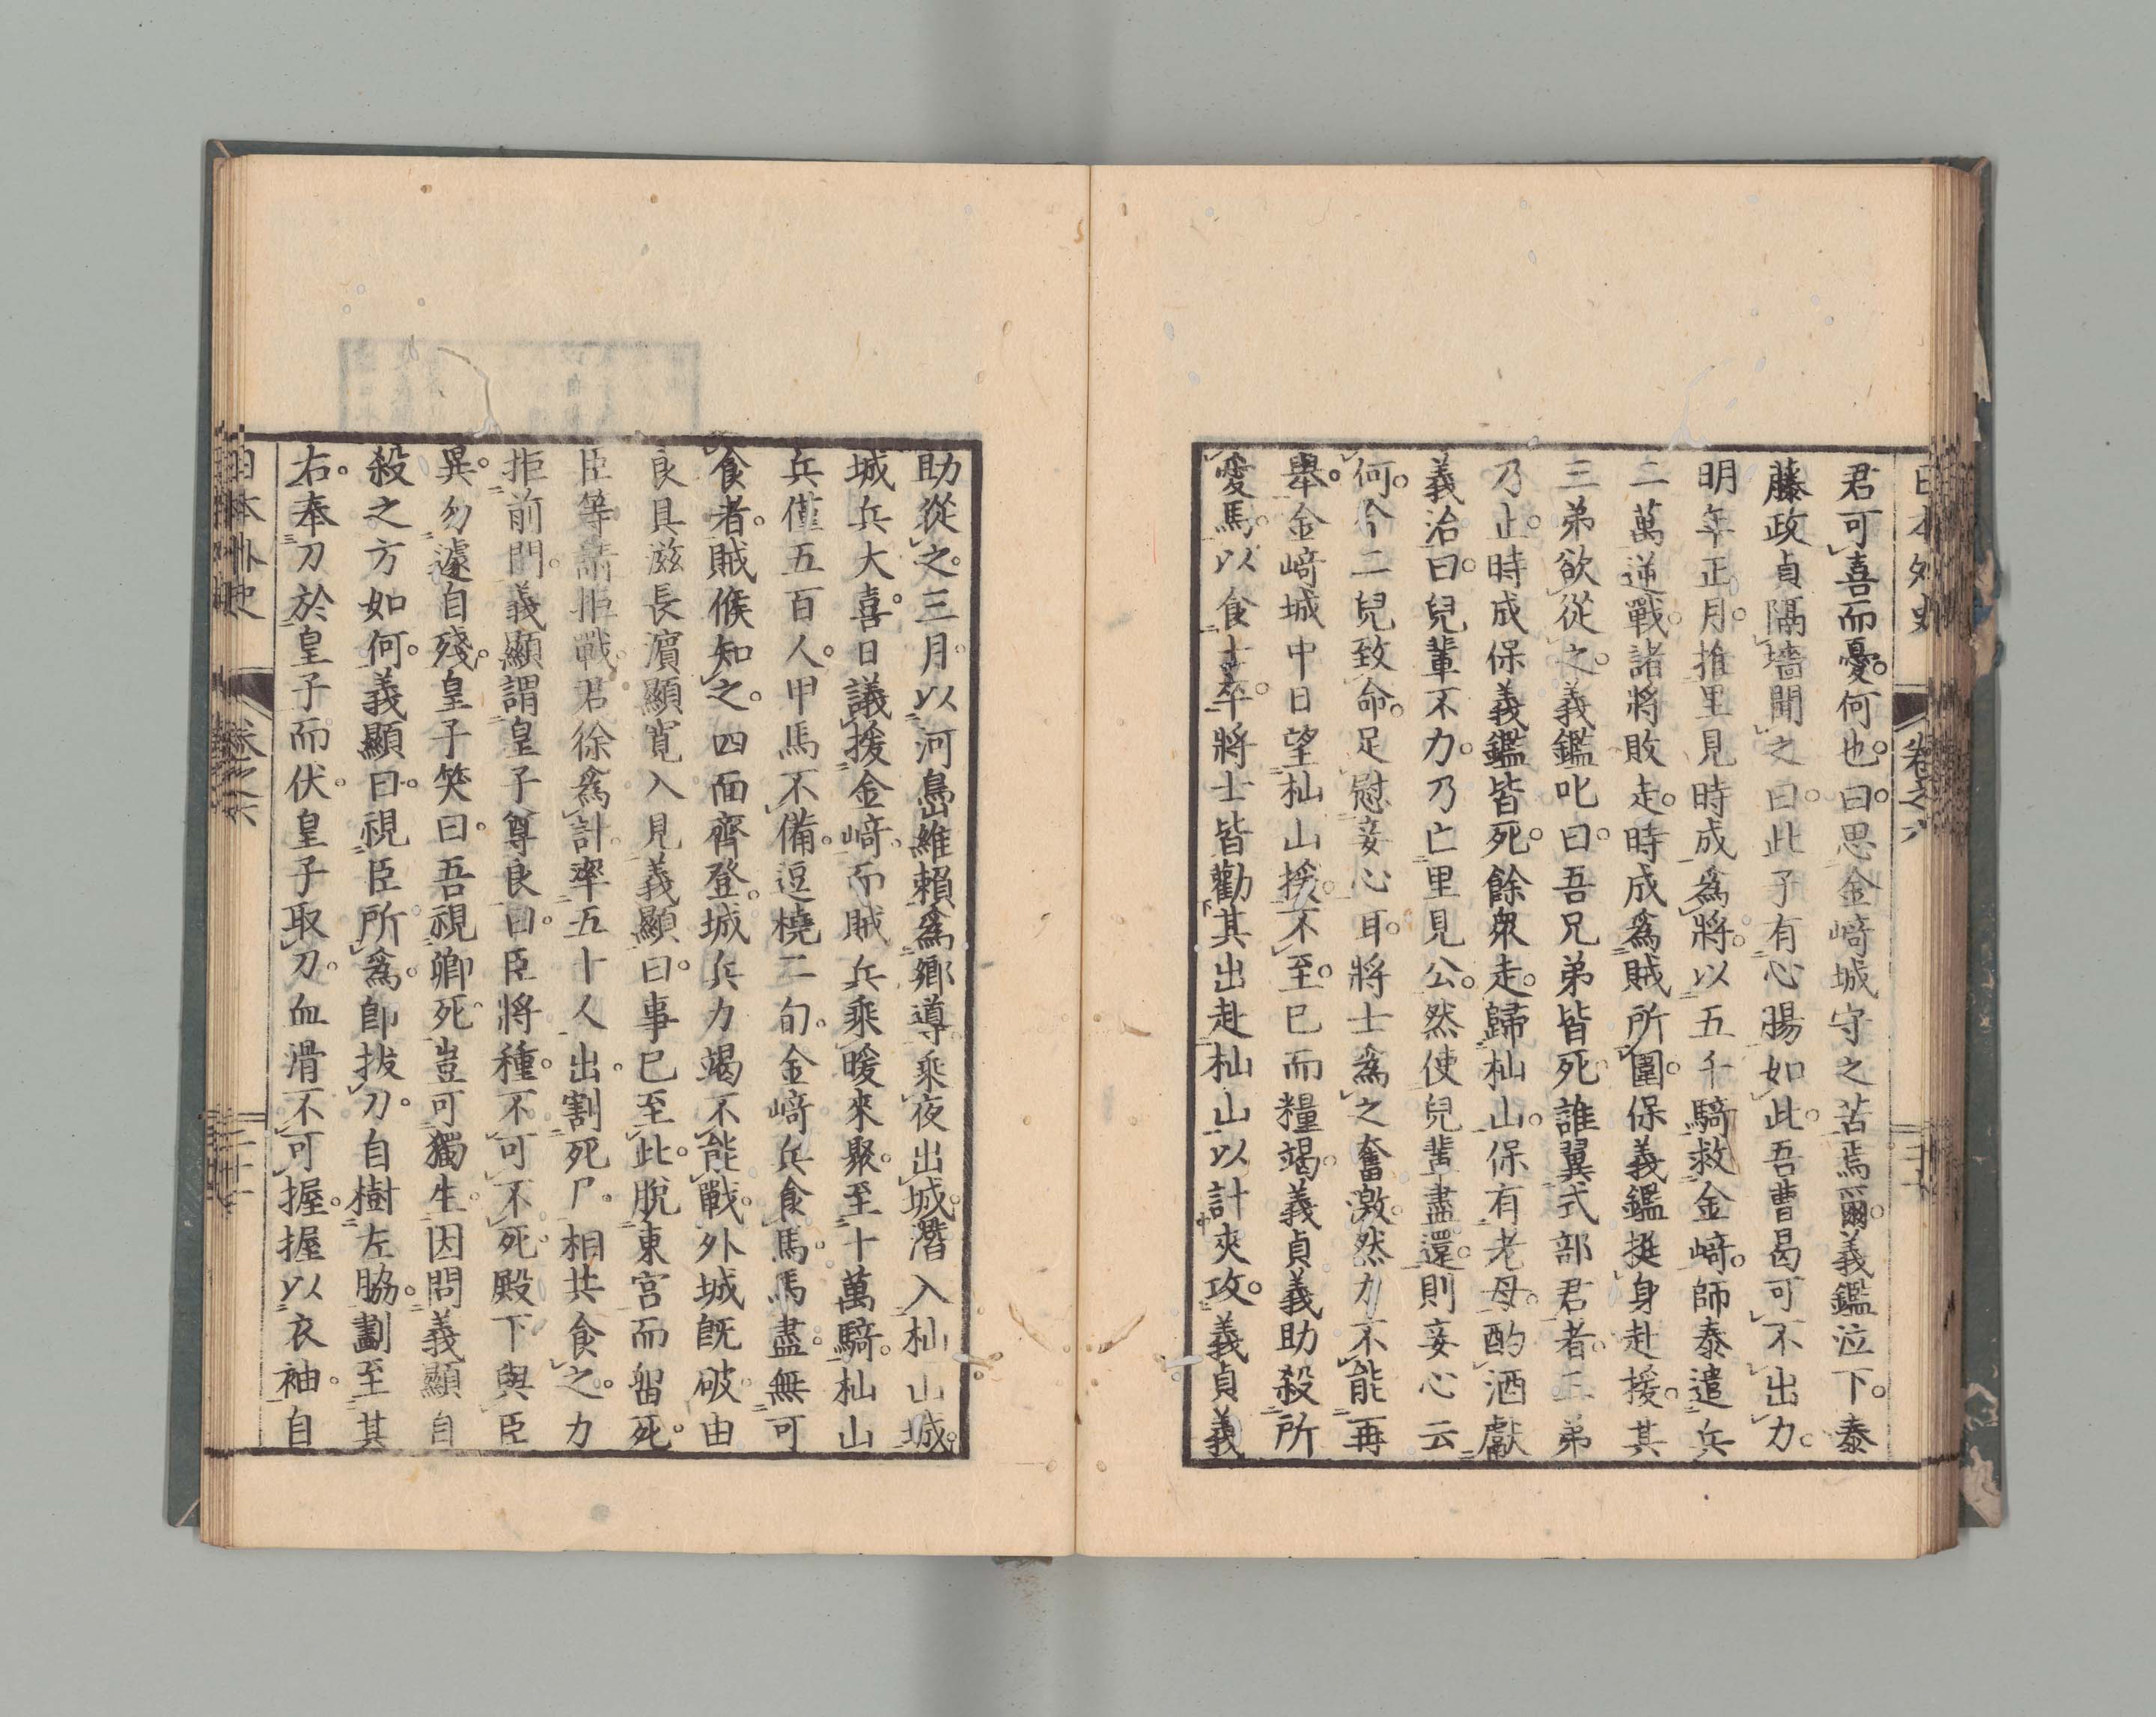 君可喜而憂。何也。曰。思金﨑城守之苦焉爾。義鑑泣下。泰
藤政貞隔墻聞之曰。此子有心腸如此。吾曹曷可不出力。
明年正月。推里見時成為將。以五千騎救金﨑。師泰遣兵
二萬逆戰。諸將敗走。時成為賊所圍。保義鑑挺身赴援。其
三弟欲從之。義鑑叱曰。吾兄弟皆死。誰翼式部君者。三弟
乃止。時成保義鑑皆死。餘衆走。歸杣山。保有老母。酌酒獻
義治曰。兒輩不力。乃亡里見公。然使兒輩盡還。則妾心云
何。今二兒致命。足慰妾心耳。將士為之奮激。然力不能再
舉。金﨑城中日望杣山援。不至。已而糧竭。義貞義助殺所
愛馬。以食士卒。將士皆勸其出赴杣山以計夾攻。義貞義
助從之。三月。以河島維賴為鄉導。乘夜出城。潛入杣山城。
城兵大喜。日議援金﨑。而賊兵乘暖來聚。至十萬騎。杣山
兵僅五百人。甲馬不備。逗橈二旬。金﨑兵食馬。馬盡。無可
食者。賊候知之。四面齊登。城兵力竭不能戰。外城既破。由
良具滋長濱顯寬入見義顯曰。事已至此。脫東宮而留死。
臣等請拒戰。君徐為計。率五十人出。割死尸。相共食之。力
拒前門。義顯謂皇子尊良曰。臣將種。不可不死。殿下與臣
異。勿遽自殘。皇子笑曰。吾視卿死。豈可獨生。因問義顯自
殺之方如何。義顯曰。視臣所為。即拔刀。自樹左脇。劃至其
右。奉刀於皇子而伏。皇子取刀。血滑不可握。握以衣袖。自
日本外史 卷之六